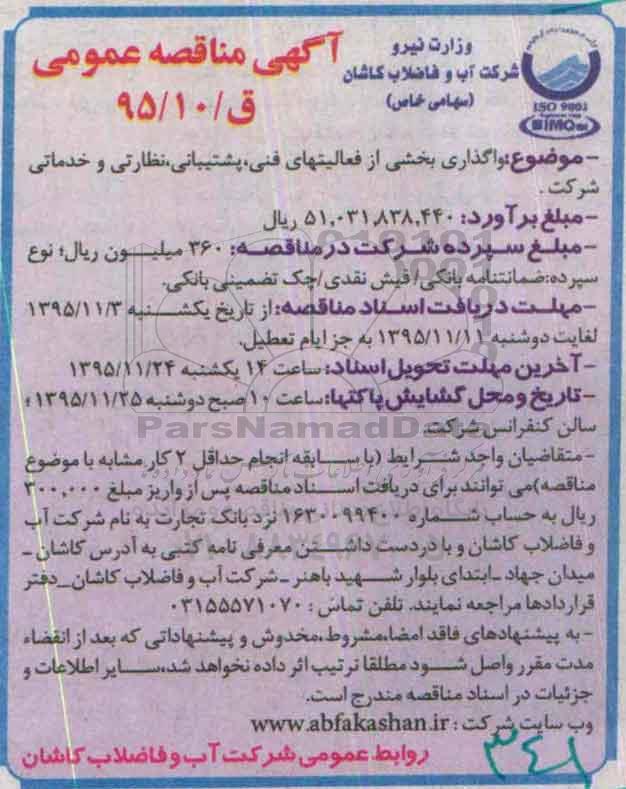 وزارت نیرو
شرکت آب و فاضلاب کاشان
(سهامی خاص)
ISO 9001
BIMQ
آگهی مناقصه عمومی
ق/۹۵/۱۰
-موضوع:واگذاری بخشی از فعالیتهای فنی،پشتیبانی،نظارتی و خدماتی
شرکت .
-مبلغ برآورد: ۵۱,۰۳۱,۸۳۸,۴۴۰ ریال
-مبلغ سپرده شرکت در مناقصه: ۳۶۰ میلیون ریال؛ نوع
سپرده:ضمانتنامه بانکی/ فیش نقدی/چک تضمینی بانکی.
-مهلت دریافت اسناد مناقصه: از تاریخ یکشنبه ۱۳۹۵/۱۱/۳
لغایت دوشنبه ۱۳۹۵/۱۱/۱۱ به جز ایام تعطیل.
-آخرین مهلت تحویل اسناد: ساعت ۱۴ یکشنبه ۱۳۹۵/۱۱/۲۴
-تاریخ و محل گشایش پاکتها: ساعت ۱۰ صبح دوشنبه ۱۳۹۵/۱۱/۲۵ ؛
سالن کنفرانس شرکت.
ParsNamadData
-متقاضیان واجد شرایط (با سابقه انجام حداقل ۲ کار مشابه با موضوع
مناقصه)می توانند برای دریافت اسناد مناقصه پس از واریز مبلغ ۳۰۰,۰۰۰
ریال به حساب شماره ۱۶۳۰۰۹۹۴۰۰ نزد بانک تجارت به نام شرکت آب
و فاضلاب کاشان و با دردست داشتن معرفی نامه کتبی به آدرس کاشان ـ
میدان جهاد ـ ابتدای بلوار شهید باهنر ـ شرکت آب و فاضلاب کاشان ـ دفتر
قراردادها مراجعه نمایند. تلفن تماس : ۰۳۱۵۵۵۷۱۰۷۰
-به پیشنهادهای فاقد امضا،مشروط،مخدوش و پیشنهاداتی که بعد از انقضاء
مدت مقرر واصل شود مطلقا ترتیب اثر داده نخواهد شد،سایر اطلاعات و
جزئیات در اسناد مناقصه مندرج است.
وب سایت شرکت : www.abfakashan.ir
روابط عمومی شرکت آب و فاضلاب کاشان